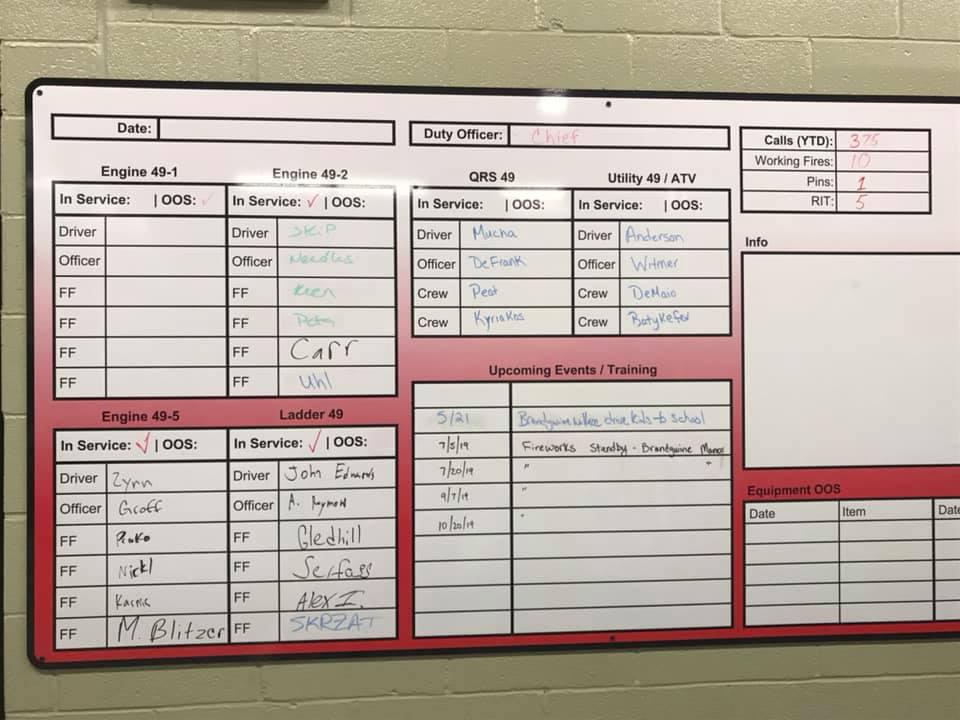 Date:
Duty Officer: Chief
Calls (YTD): 375
Working Fires: 10
Pins: 1
RIT: 5
Engine 49-1
In Service: | OOS: ✓
Driver
Officer
FF
FF
FF
FF
Engine 49-2
In Service: ✓ | OOS:
Driver SKIP
Officer Needles
FF Ken
FF Pete
FF Carr
FF Uhl
QRS 49
In Service: | OOS:
Driver Mucha
Officer DeFrank
Crew Peat
Crew Kyriakos
Utility 49 / ATV
In Service: | OOS:
Driver Anderson
Officer Witmer
Crew DeMaio
Crew Batykefer
Info
Engine 49-5
In Service: ✓ | OOS:
Driver Zynn
Officer Groff
FF
FF Nickl
FF
FF M. Blitzer
Ladder 49
In Service: ✓ | OOS:
Driver John Edwards
Officer A. Raymond
FF Gledhill
FF Serfass
FF Alex I.
FF SKRZAT
Upcoming Events / Training
5/21 Brandywine Wallace drive kids to school
7/5/19 Fireworks Standby - Brandywine Manor
7/20/19 " "
9/7/19 "
10/20/19 "
Equipment OOS
Date Item Date